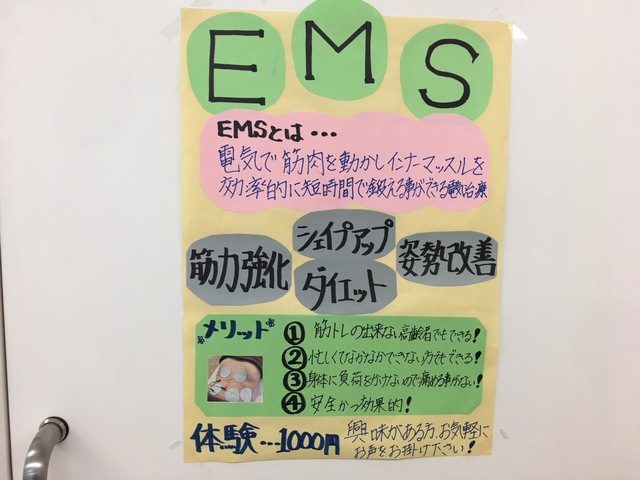 EMS
EMSとは・・・
電気で筋肉を動かしインナーマッスルを
効率的に短時間で鍛える事ができる電気治療
筋力強化
シェイプアップ
ダイエット
姿勢改善
メリット
① 筋トレの出来ない高齢者でもできる!
② 忙しくてなかなかできない方でもできる!
③ 身体に負荷をかけないので痛める事がない!
④ 安全かつ効果的!
体験…1000円
興味がある方、お気軽に
お声をお掛け下さい!